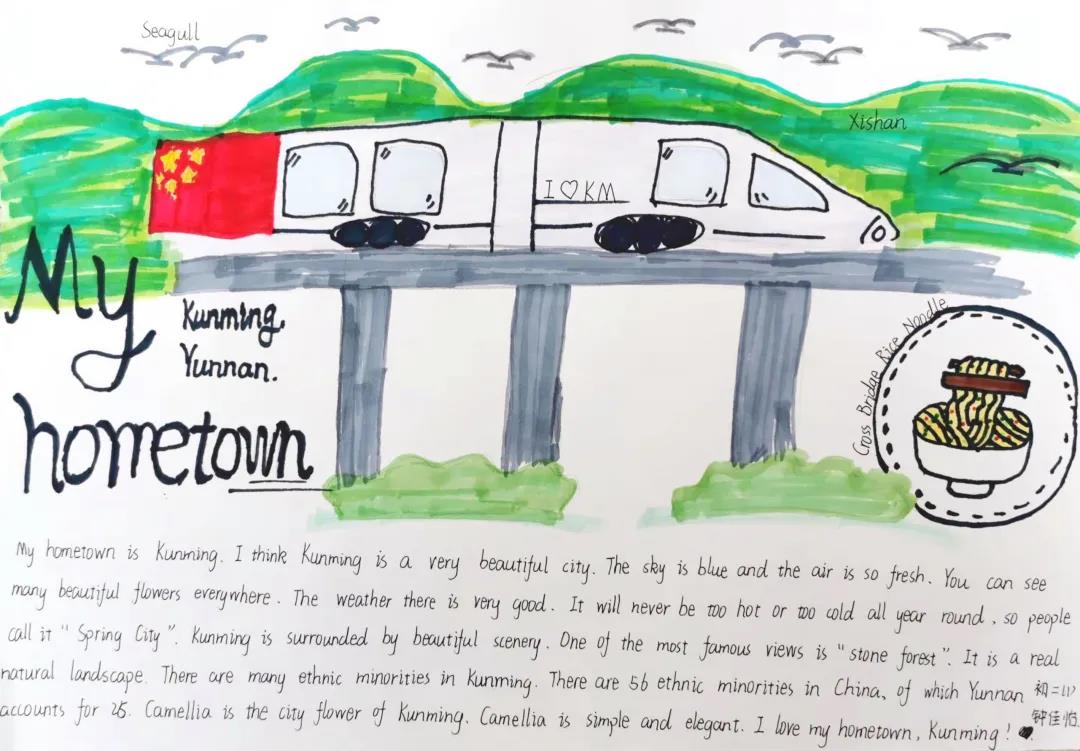 Seagull
Xishan
I ♡ KM
My
Kunming,
Yunnan.
hometown
Cross Bridge Rice Noodle
My hometown is Kunming. I think Kunming is a very beautiful city. The sky is blue and the air is so fresh. You can see
many beautiful flowers everywhere. The weather there is very good. It will never be too hot or too cold all year round, so people
call it "Spring City". Kunming is surrounded by beautiful scenery. One of the most famous views is "stone forest". It is a real
natural landscape. There are many ethnic minorities in Kunming. There are 56 ethnic minorities in China, of which Yunnan
accounts for 25. Camellia is the city flower of Kunming. Camellia is simple and elegant. I love my hometown, Kunming!
初二(1)
钟佳怡